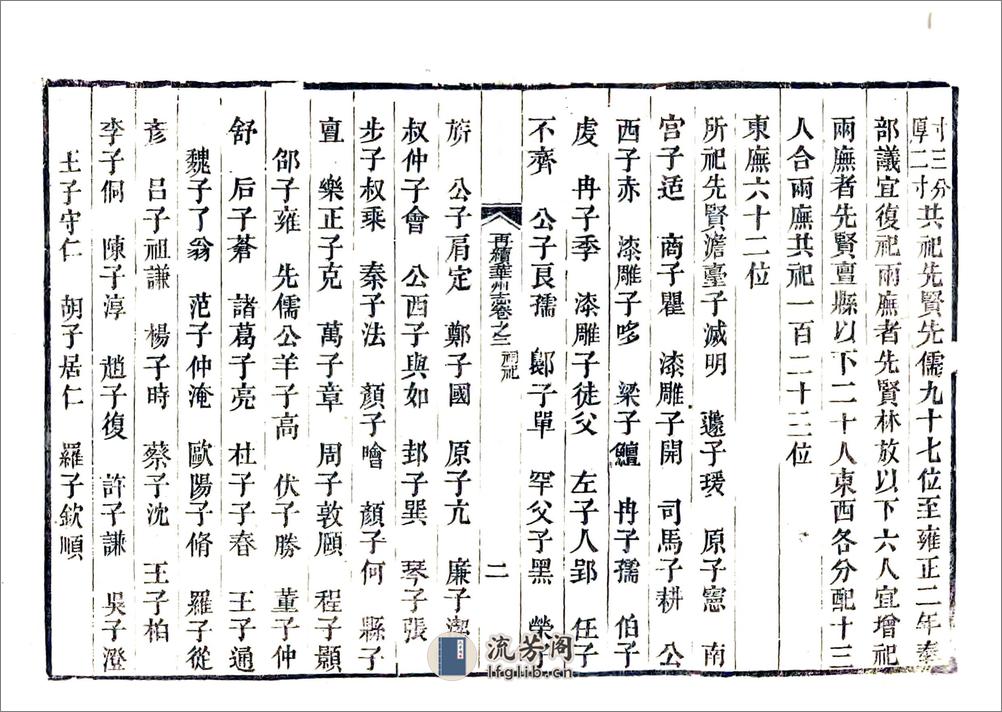 寸三分
厚二寸共祀先賢先儒九十七位至雍正二年奉
部議宜復祀兩廡者先賢林放以下六人宜增祀
兩廡者先賢亶縣以下二十人東西各分配十三
人合兩廡共祀一百二十三位
東廡六十二位
所祀先賢澹臺子滅明 蘧子瑗 原子憲 南
宫子适 商子瞿 漆雕子開 司馬子耕 公
西子赤 漆雕子哆 梁子鱣 冉子孺 伯子
虔 冉子季 漆雕子徒父 左子人郢 任子
不齊 公子良孺 鄡子單 罕父子黑 榮子
再續華州志卷之二 祠祀 二
旂 公子肩定 鄭子國 原子亢 廉子潔
叔仲子會 公西子與如 邽子巽 琴子張
步子叔乘 秦子法 顏子噲 顏子何 縣子
亶 樂正子克 萬子章 周子敦頤 程子顥
邵子雍 先儒公羊子高 伏子勝 董子仲
舒 后子蒼 諸葛子亮 杜子子春 王子通
魏子了翁 范子仲淹 歐陽子脩 羅子從
彥 呂子祖謙 楊子時 蔡子沈 王子柏
李子侗 陳子淳 趙子復 許子謙 吳子澄
王子守仁 胡子居仁 羅子欽順
流芳阁
lfglib.cn